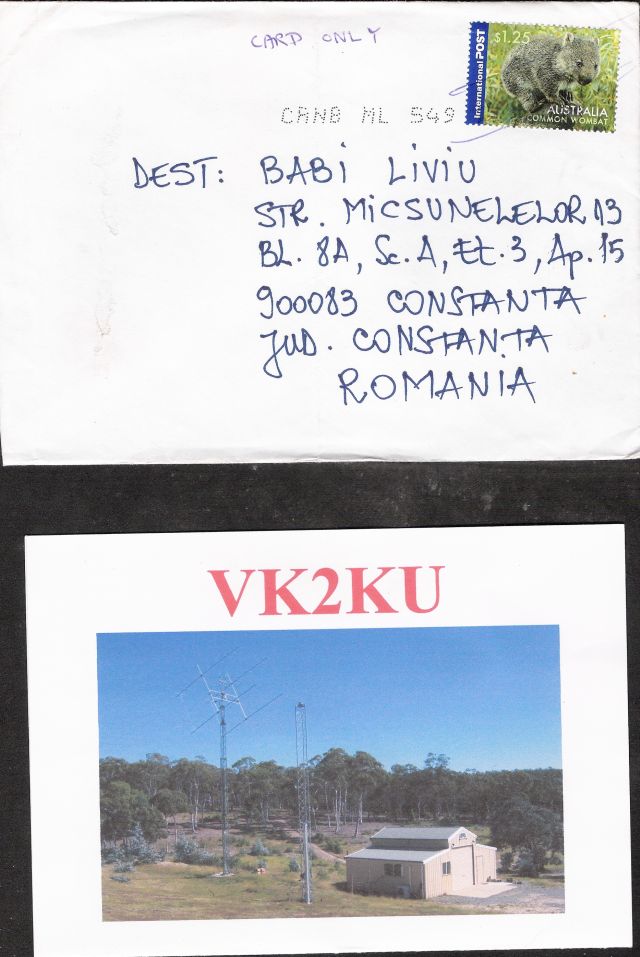 CARD ONLY
International POST
$1.25
AUSTRALIA
COMMON WOMBAT
CRNB ML 549
DEST: BABI LIVIU
STR. MICSUNELELOR 13
BL. 8A, Sc. A, Et. 3, Ap. 15
900083 CONSTANTA
JUD. CONSTANŢA
ROMANIA
VK2KU